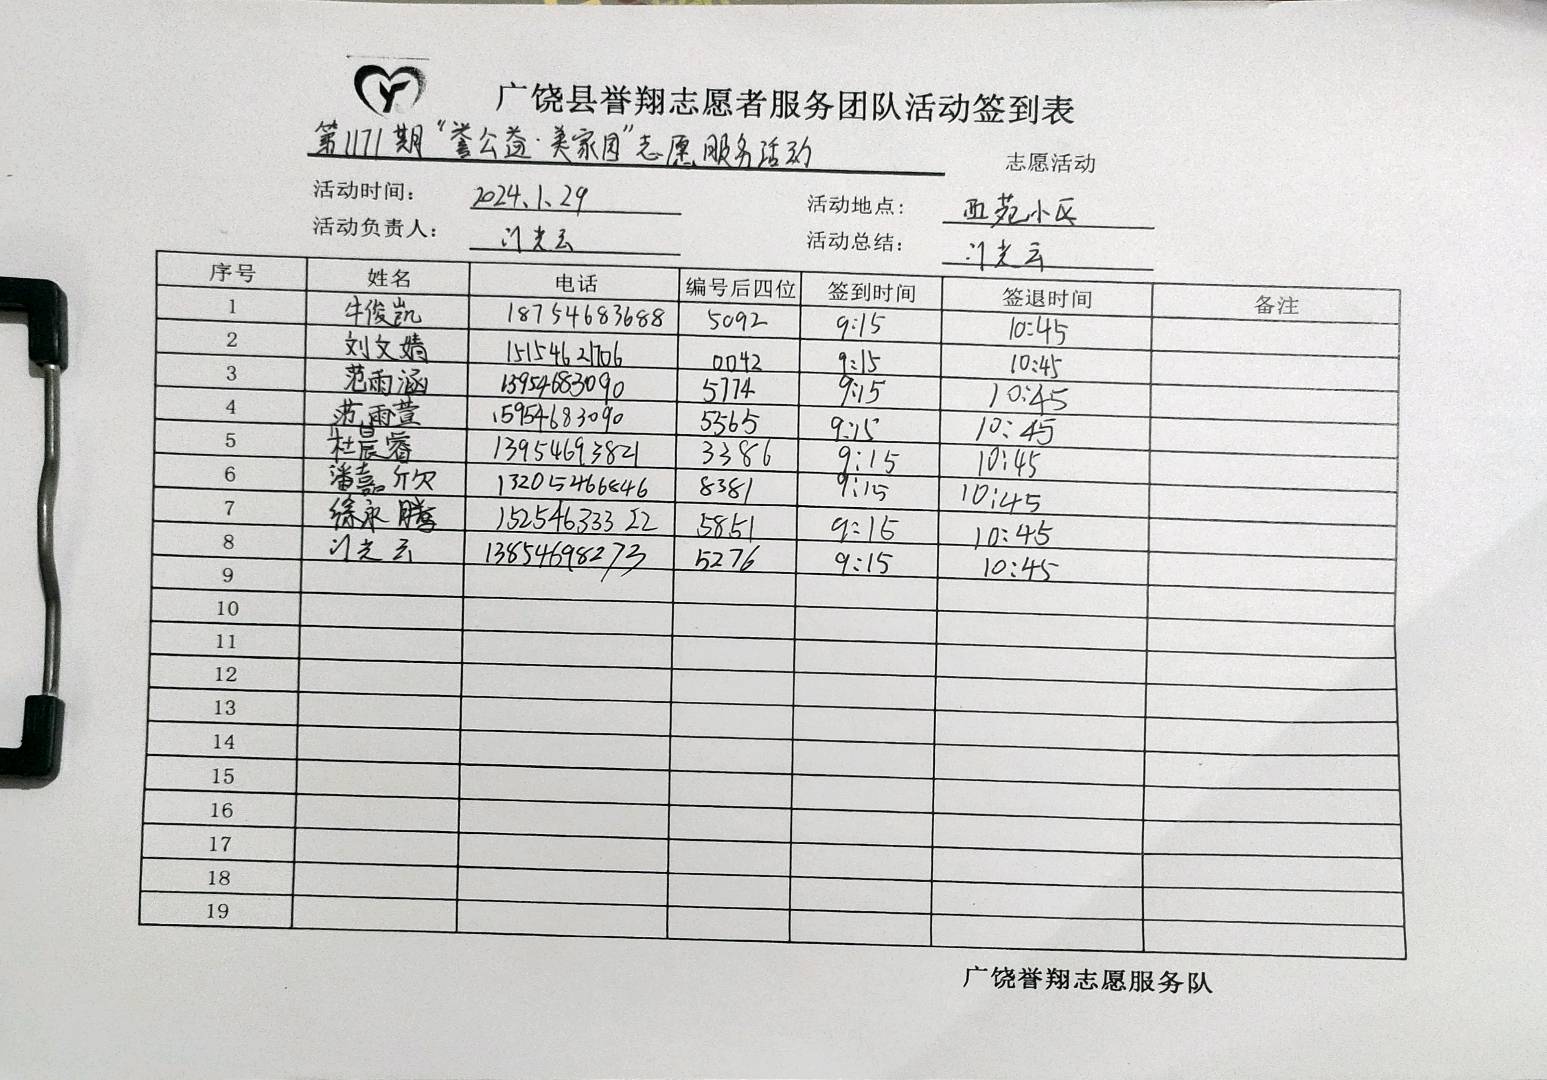 广饶县誉翔志愿者服务团队活动签到表
第1171期“誉公益·美家园”志愿服务活动 志愿活动
活动时间： 2024.1.29 活动地点： 西苑小区
活动负责人： 门光云 活动总结： 门光云
序号 姓名 电话 编号后四位 签到时间 签退时间 备注
1 牛俊凯 18754683688 5092 9:15 10:45
2 刘文婧 15154621706 0042 9:15 10:45
3 范雨涵 13954683090 5774 9:15 10:45
4 范雨萱 15954683090 5565 9:15 10:45
5 杜晨睿 13954693821 3386 9:15 10:45
6 潘嘉欣 13205466846 8381 9:15 10:45
7 徐永腾 15254633322 5851 9:15 10:45
8 门光云 13854698273 5276 9:15 10:45
9
10
11
12
13
14
15
16
17
18
19
广饶誉翔志愿服务队